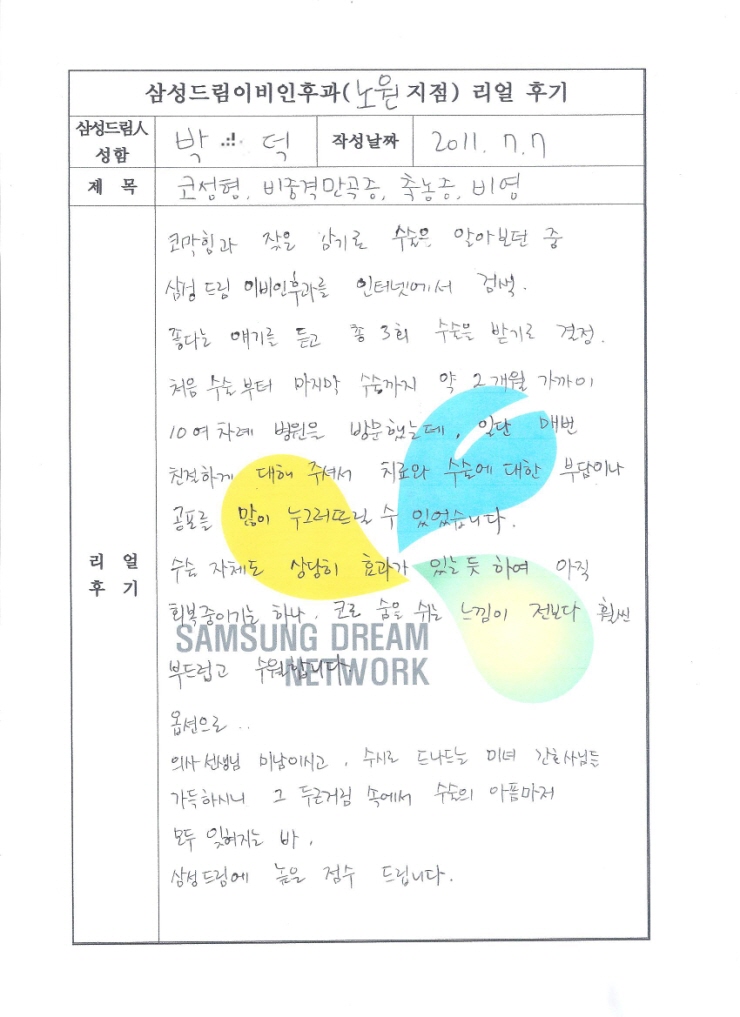 삼성드림이비인후과(노원지점) 리얼 후기
삼성드림人 성함
박 덕
작성날짜
2011. 7. 7
제 목
코성형, 비중격만곡증, 축농증, 비염
리 얼 후 기
코막힘과 잦은 감기로 수술은 알아보던 중
삼성드림 이비인후과를 인터넷에서 검색.
좋다는 얘기를 듣고 총 3회 수술을 받기로 결정.
처음 수술부터 마지막 수술까지 약 2개월 가까이
10여 차례 병원을 방문했는데, 일단 매번
친절하게 대해 주셔서 치료와 수술에 대한 부담이나
공포를 많이 누그러뜨릴 수 있었습니다.
수술 자체도 상당히 효과가 있는 듯 하여 아직
회복중이기는 하나, 코로 숨을 쉬는 느낌이 전보다 훨씬
부드럽고 수월합니다.
옵션으로 ..
의사선생님 미남이시고, 수시로 드나드는 미녀 간호사님들
가득하시니 그 두근거림 속에서 수술의 아픔마저
모두 잊혀지는 바,
삼성드림에 높은 점수 드립니다.
SAMSUNG DREAM
NETWORK